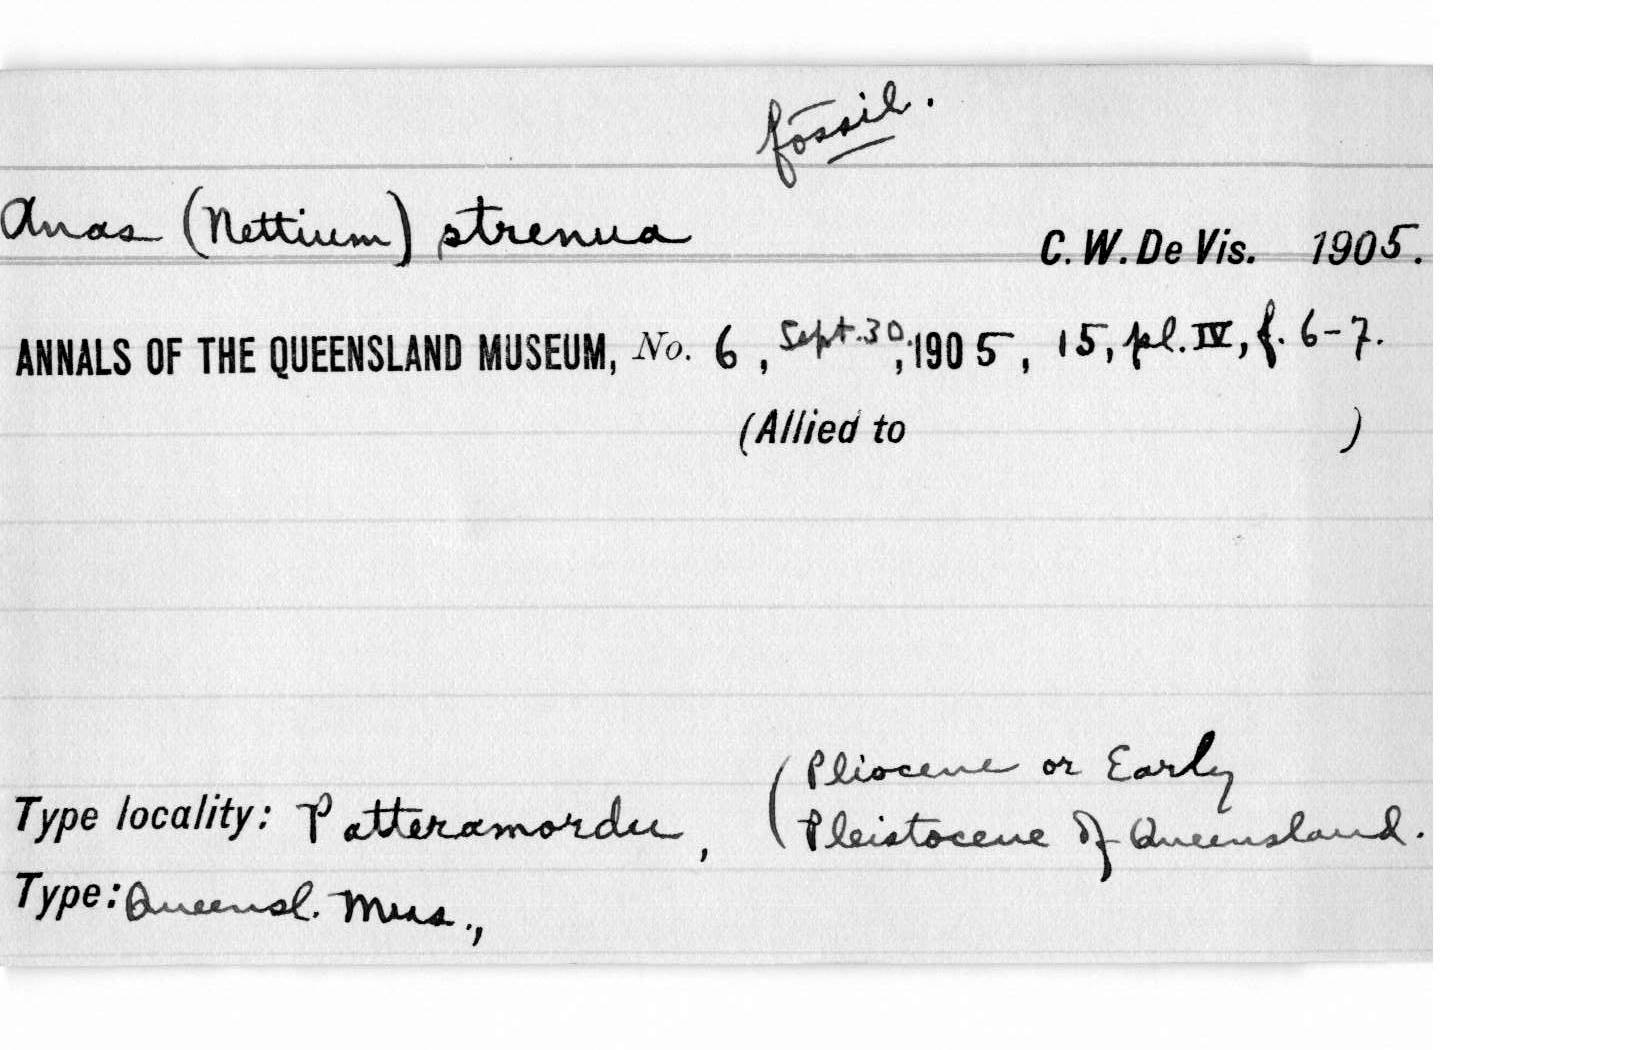 fossil.
Anas (Nettium) strenua C. W. De Vis. 1905.
ANNALS OF THE QUEENSLAND MUSEUM, No. 6, Sept. 30, 1905, 15, pl. IV, f. 6-7.
(Allied to )
Type locality: Patteramordu, (Pliocene or Early
Pleistocene of Queensland.
Type: Queensl. Mus.,